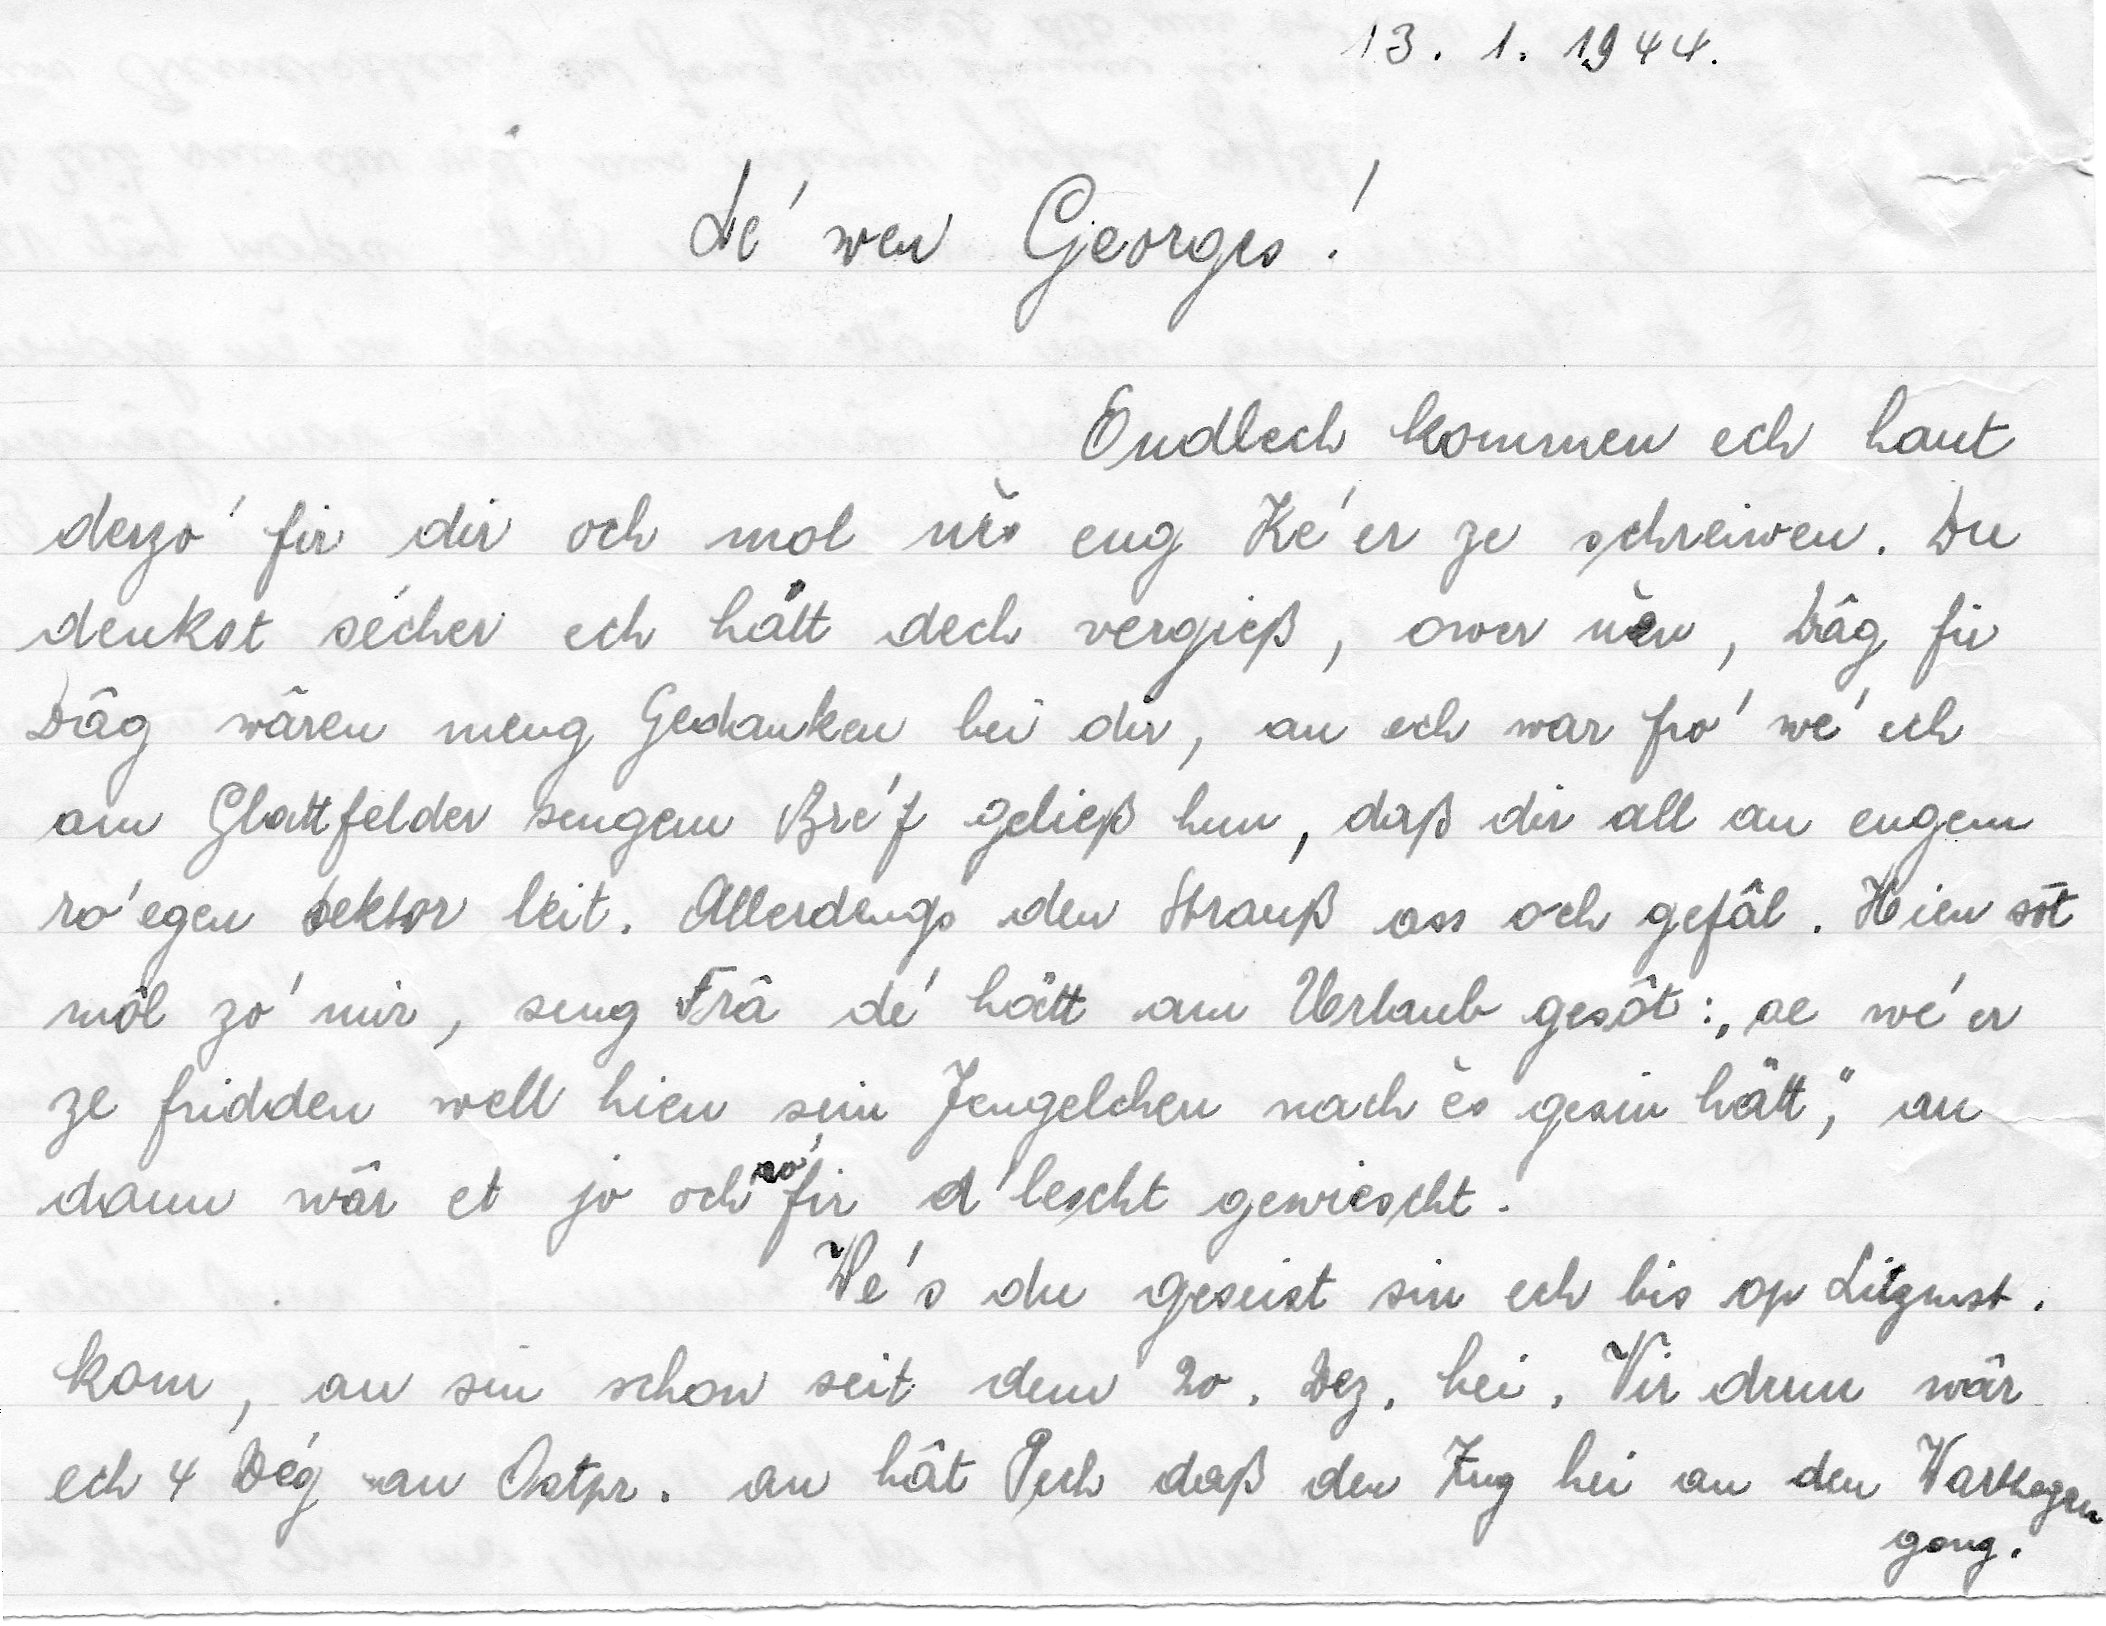 13. 1. 1944.
Le'wen Georges!
Endlech kommen ech haut
derzo' fir dir och mol nès eng Ke'er ze schreiwen. Du
denkst sécher ech hätt dech vergieß, ower nèn, Dâg fir
Dâg wâren meng Gedanken bei dir, an ech war fro' we' ech
am Glattfelder sengem Bre'f geließ hun, daß dir all an engem
ro'egen Sektor leit. Allerdengs den Strauß ass och gefâl. Hien sôt
môl zo' mir, seng Frâ de' hätt am Urlaub gesôt: „se we'er
ze fridden well hien sein Jengelchen nach ès gesin hätt", an
dann wâr et jo och so' fir d'lescht gewiescht.
We's du geseist sin ech bis op Litzmst.
kom, an sin schon seit dem 20. Dez. hei. Vir drun wâr
ech 4 Dég an Ostpr. an hât Pech daß den Zug hei an den Warthegau
gong.